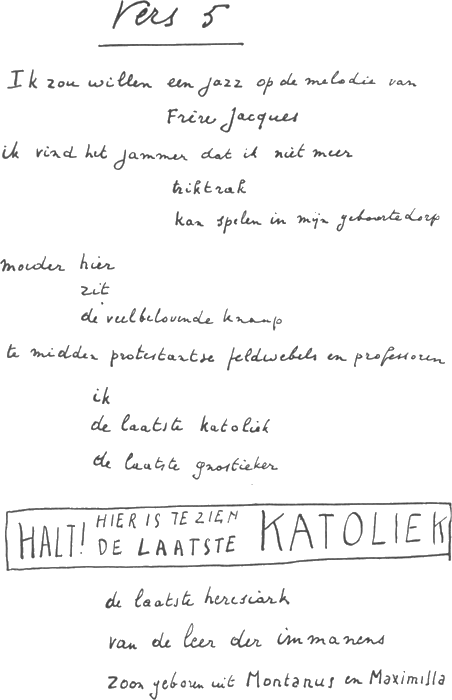 Vers 5
Ik zou willen een jazz op de melodie van
Frère Jacques
ik vind het jammer dat ik niet meer
triktrak
kan spelen in mijn geboortedorp
moeder hier
zit
de veelbelovende knaap
te midden protestantse feldwebels en professoren
ik
de laatste katoliek
de laatste gnostieker
HALT! HIER IS TE ZIEN
DE LAATSTE KATOLIEK
de laatste heresiark
van de leer der immanens
zoon geboren uit Montanus en Maximilla